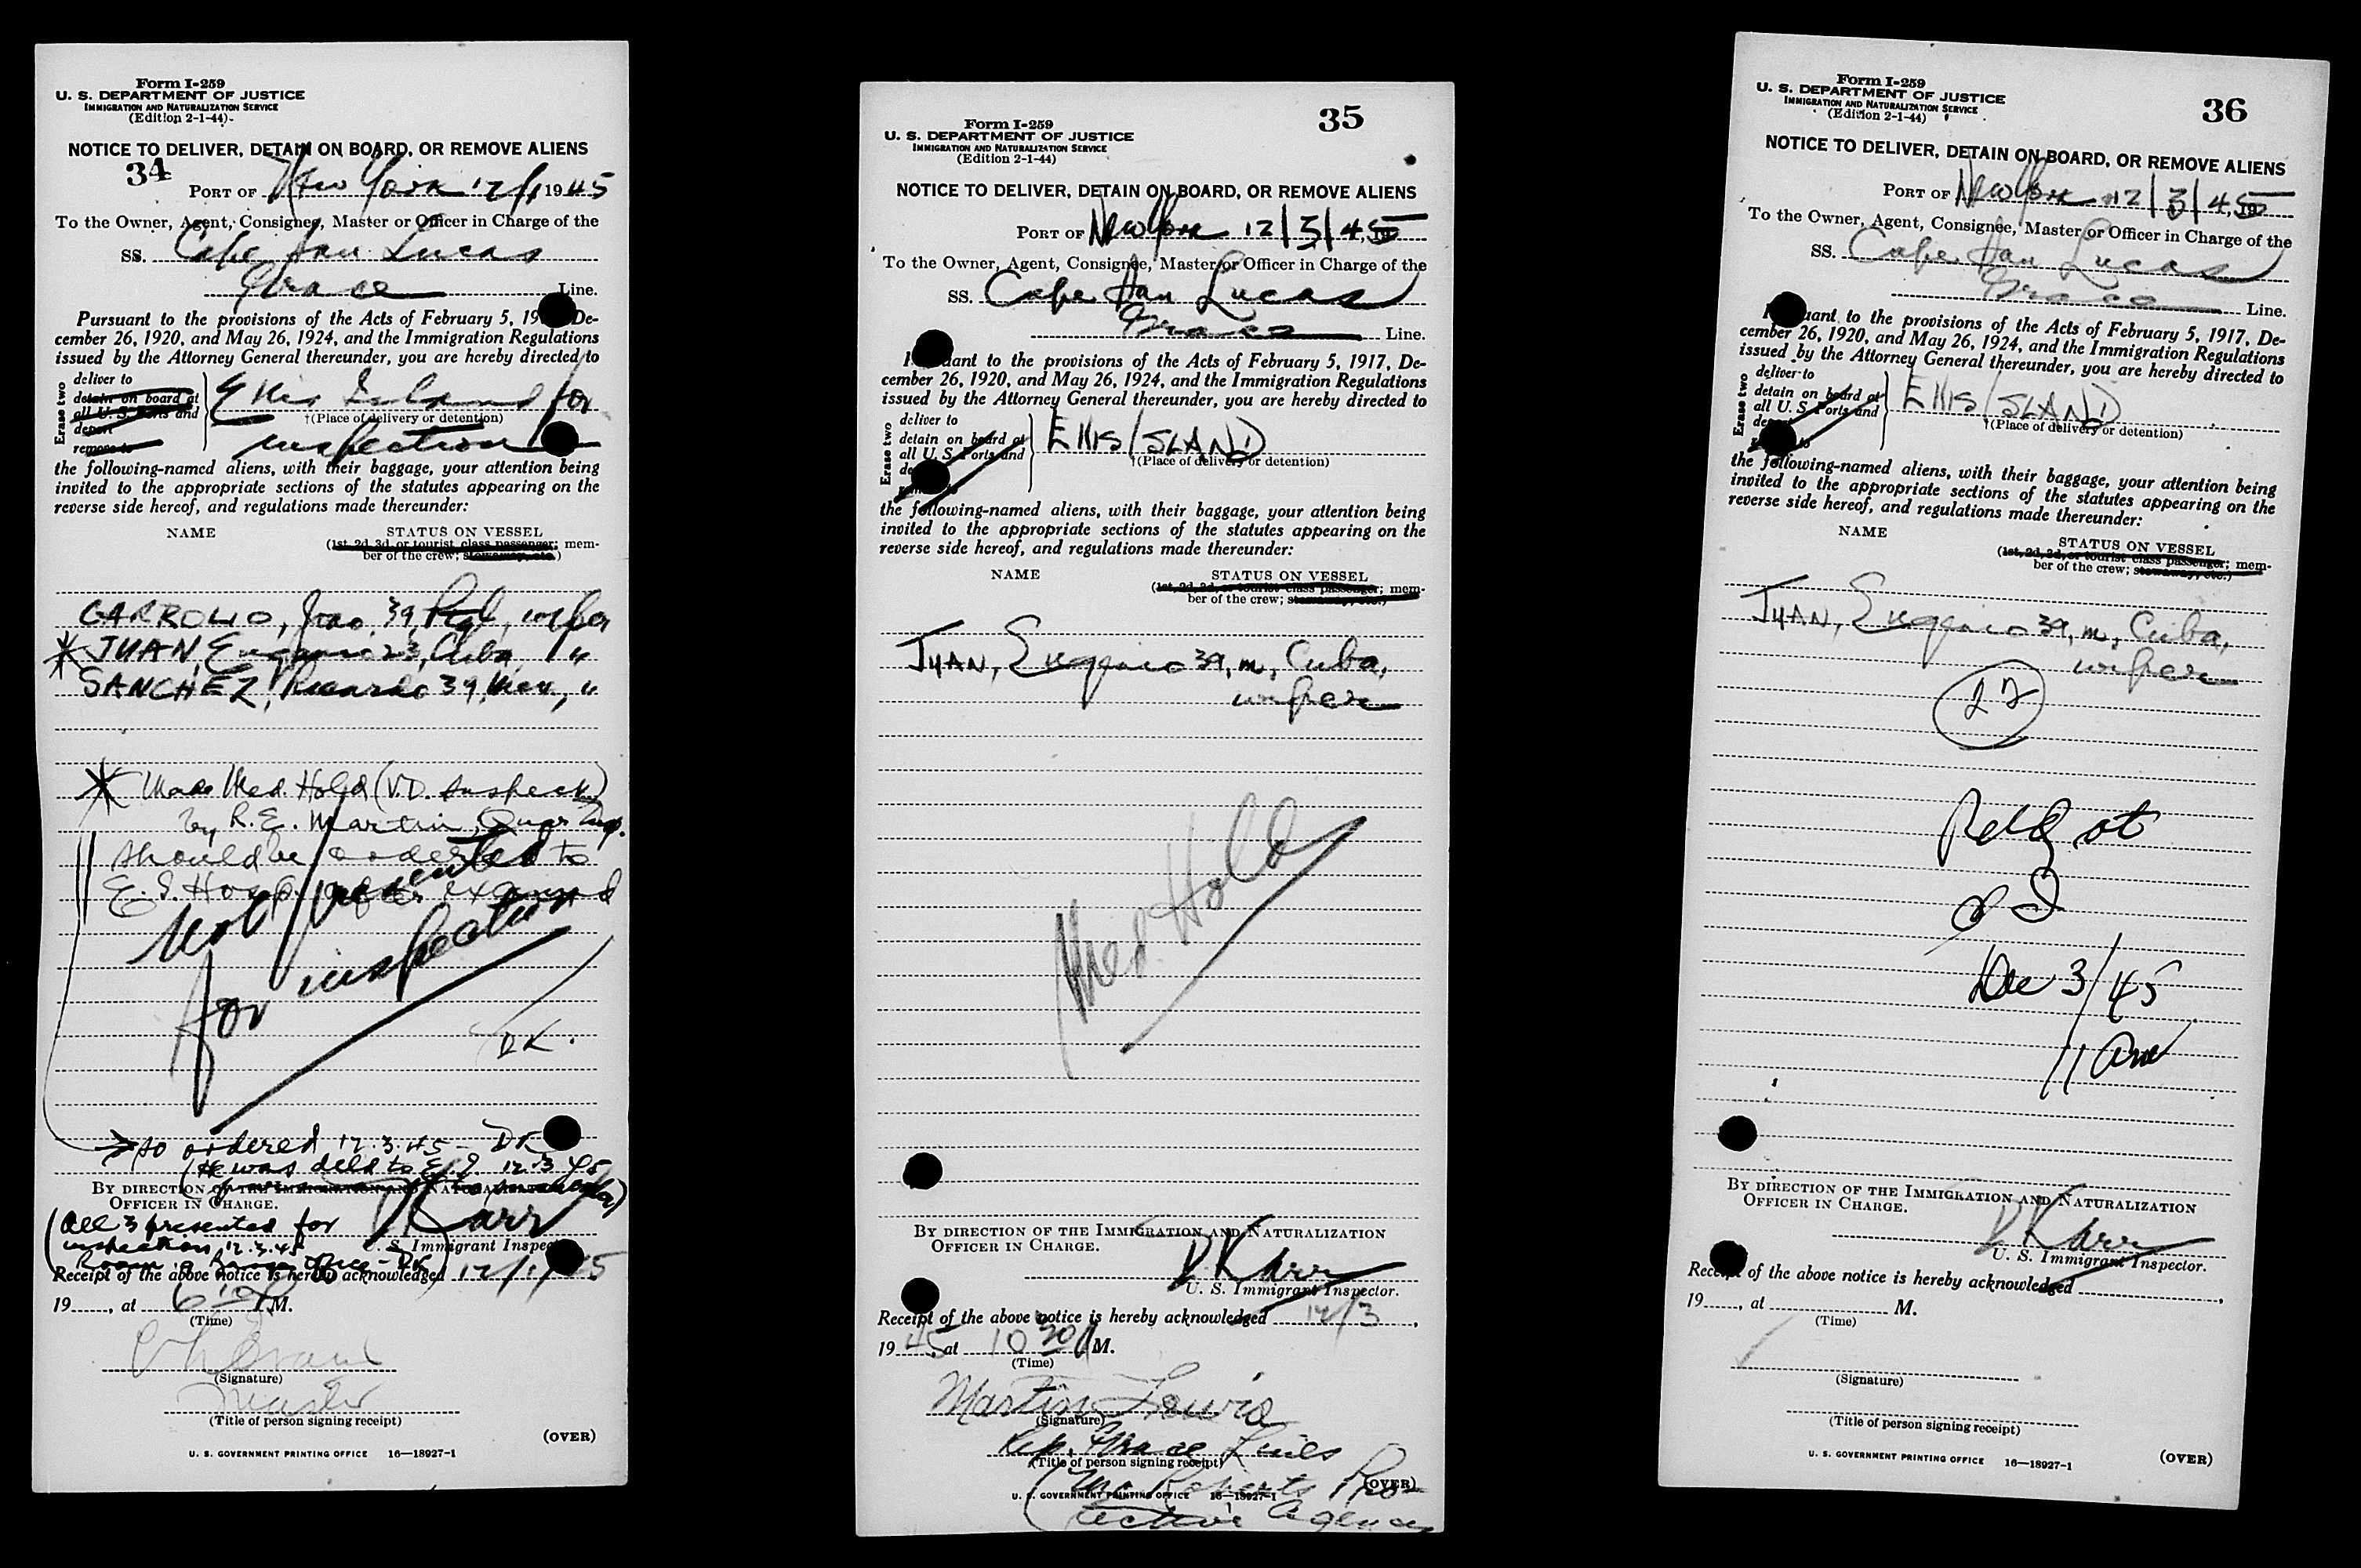 Form I-259
U. S. DEPARTMENT OF JUSTICE
IMMIGRATION AND NATURALIZATION SERVICE
(Edition 2-1-44)
NOTICE TO DELIVER, DETAIN ON BOARD, OR REMOVE ALIENS
34
PORT OF New York 12/1 1945
To the Owner, Agent, Consignee, Master or Officer in Charge of the
SS. Cape San Lucas
Grace Line.
Pursuant to the provisions of the Acts of February 5, 19 De-
cember 26, 1920, and May 26, 1924, and the Immigration Regulations
issued by the Attorney General thereunder, you are hereby directed to
Erase two
deliver to
detain on board at
all U. S. Ports and
deport
remove to
Ellis Island for
†(Place of delivery or detention)
inspection
the following-named aliens, with their baggage, your attention being
invited to the appropriate sections of the statutes appearing on the
reverse side hereof, and regulations made thereunder:
NAME STATUS ON VESSEL
(1st, 2d, 3d, or tourist class passenger; mem-
ber of the crew; stowaway, etc.)
Joao, 39, wiper
* JUAN, Eugenio 23, Cuba, "
SANCHEZ, Ricardo 39, Mex, "
* Made Med. Hold (V.D. Suspect)
by R. E. Martin, Quar Insp.
should be ordered to
E. I. Hosp. after
Not presented
for inspection
DK.
→ so ordered 12.3.45 - DK
(He was deld to E. I. 12.3.45
BY DIRECTION OF THE IMMIGRATION AND NATURALIZATION
OFFICER IN CHARGE.
D Karr
(All 3 presented for
inspection 12.3.45
U. S. Immigrant Inspector
Receipt of the above notice is hereby acknowledged 12/1/45
19 , at 6 10 P.M.
(Time)
(Signature)
Master
(Title of person signing receipt)
(OVER)
U. S. GOVERNMENT PRINTING OFFICE 16—18927-1
Form I-259
U. S. DEPARTMENT OF JUSTICE
IMMIGRATION AND NATURALIZATION SERVICE
(Edition 2-1-44)
35
NOTICE TO DELIVER, DETAIN ON BOARD, OR REMOVE ALIENS
PORT OF New York 12/3/45
To the Owner, Agent, Consignee, Master or Officer in Charge of the
SS. Cape San Lucas
Grace Line.
ant to the provisions of the Acts of February 5, 1917, De-
cember 26, 1920, and May 26, 1924, and the Immigration Regulations
issued by the Attorney General thereunder, you are hereby directed to
Erase two
deliver to
detain on board at
all U. S. Ports and
de
ELLIS ISLAND
†(Place of delivery or detention)
the following-named aliens, with their baggage, your attention being
invited to the appropriate sections of the statutes appearing on the
reverse side hereof, and regulations made thereunder:
NAME STATUS ON VESSEL
(1st, 2d, 3d, or tourist class passenger; mem-
ber of the crew; stowaway, etc.)
JUAN, Eugenio 39, m, Cuba,
wiper
Med. Hold
BY DIRECTION OF THE IMMIGRATION AND NATURALIZATION
OFFICER IN CHARGE.
D Karr
U. S. Immigrant Inspector.
Receipt of the above notice is hereby acknowledged 12/3,
19 45, at 10 30 A M.
(Time)
Martin Lewis
(Signature)
Rep. Grace Lines
(Title of person signing receipt)
(Mc Roberts Pro-
(OVER)
U. S. GOVERNMENT PRINTING OFFICE 16—18927-1
tective Agency
Form I-259
U. S. DEPARTMENT OF JUSTICE
IMMIGRATION AND NATURALIZATION SERVICE
(Edition 2-1-44)
36
NOTICE TO DELIVER, DETAIN ON BOARD, OR REMOVE ALIENS
PORT OF New York 12/3/45
To the Owner, Agent, Consignee, Master or Officer in Charge of the
SS. Cape San Lucas
Grace Line.
uant to the provisions of the Acts of February 5, 1917, De-
cember 26, 1920, and May 26, 1924, and the Immigration Regulations
issued by the Attorney General thereunder, you are hereby directed to
Erase two
deliver to
detain on board at
all U. S. Ports and
de
to
ELLIS ISLAND
†(Place of delivery or detention)
the following-named aliens, with their baggage, your attention being
invited to the appropriate sections of the statutes appearing on the
reverse side hereof, and regulations made thereunder:
NAME STATUS ON VESSEL
(1st, 2d, 3d, or tourist class passenger; mem-
ber of the crew; stowaway, etc.)
JUAN, Eugenio 39, m, Cuba,
wiper
Recd at
E I
Dec 3/45
11 am
BY DIRECTION OF THE IMMIGRATION AND NATURALIZATION
OFFICER IN CHARGE.
D Karr
U. S. Immigrant Inspector.
Receipt of the above notice is hereby acknowledged ,
19 , at M.
(Time)
(Signature)
(Title of person signing receipt)
U. S. GOVERNMENT PRINTING OFFICE 16—18927-1
(OVER)